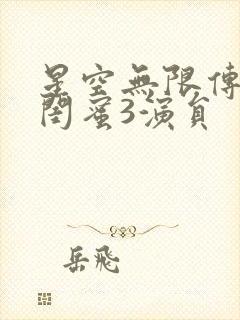 星空無限傳
閨蜜3演員
岳飛